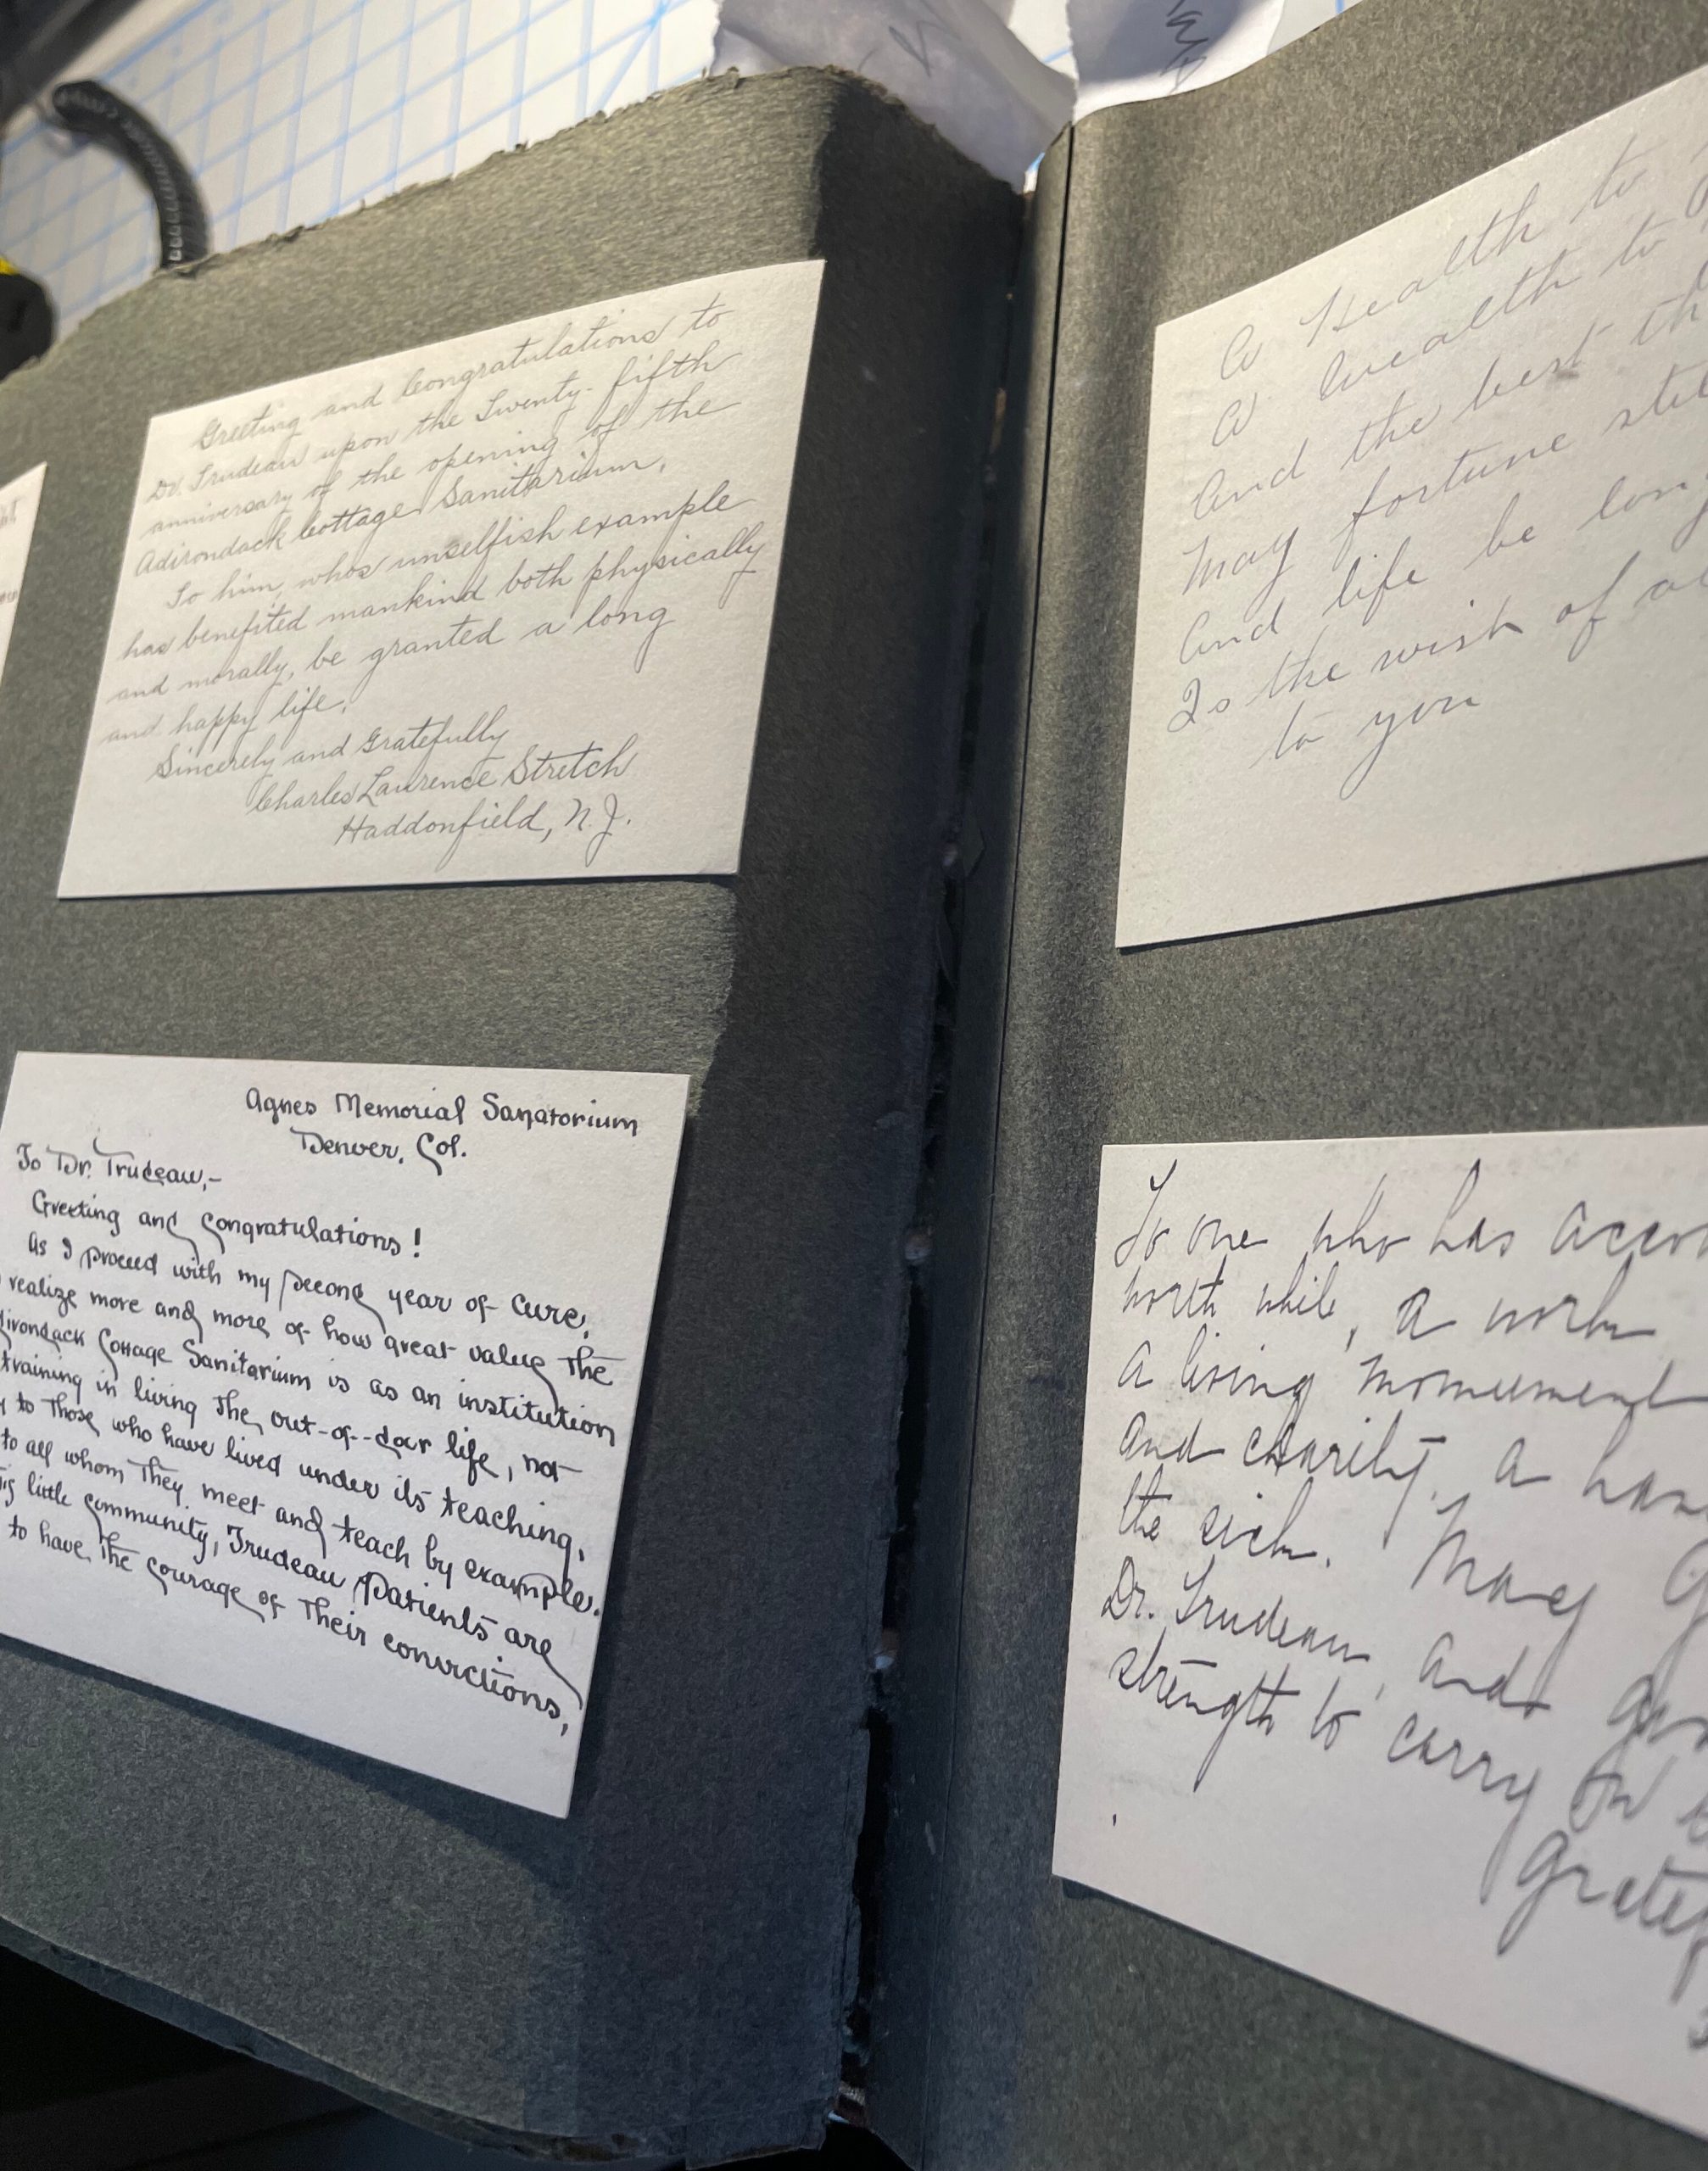 Greeting and Congratulations to
Dr. Trudeau upon the Twenty-fifth
anniversary of the opening of the
Adirondack Cottage Sanitarium,
To him, whos unselfish example
has benefited mankind both physically
and morally, be granted a long
and happy life.
Sincerely and Gratefully
Charles Laurence Stretch
Haddonfield, N.J.
Agnes Memorial Sanatorium
Denver, Col.
To Dr. Trudeau,-
Greeting and congratulations!
As I proceed with my second year of cure,
realize more and more of how great value the
Cottage Sanitarium is as an institution
training in living the out-of-door life, not
to those who have lived under its teaching,
to all whom they meet and teach by example.
little community, Trudeau patients are
to have the courage of their convictions,
A Health to
A Wealth to
And the best
May fortune
And life be
Is the wish of
to you
To one who has
worth while, a
a living monument
and charity, a
the sick. May
Dr. Trudeau, and
strength to carry on